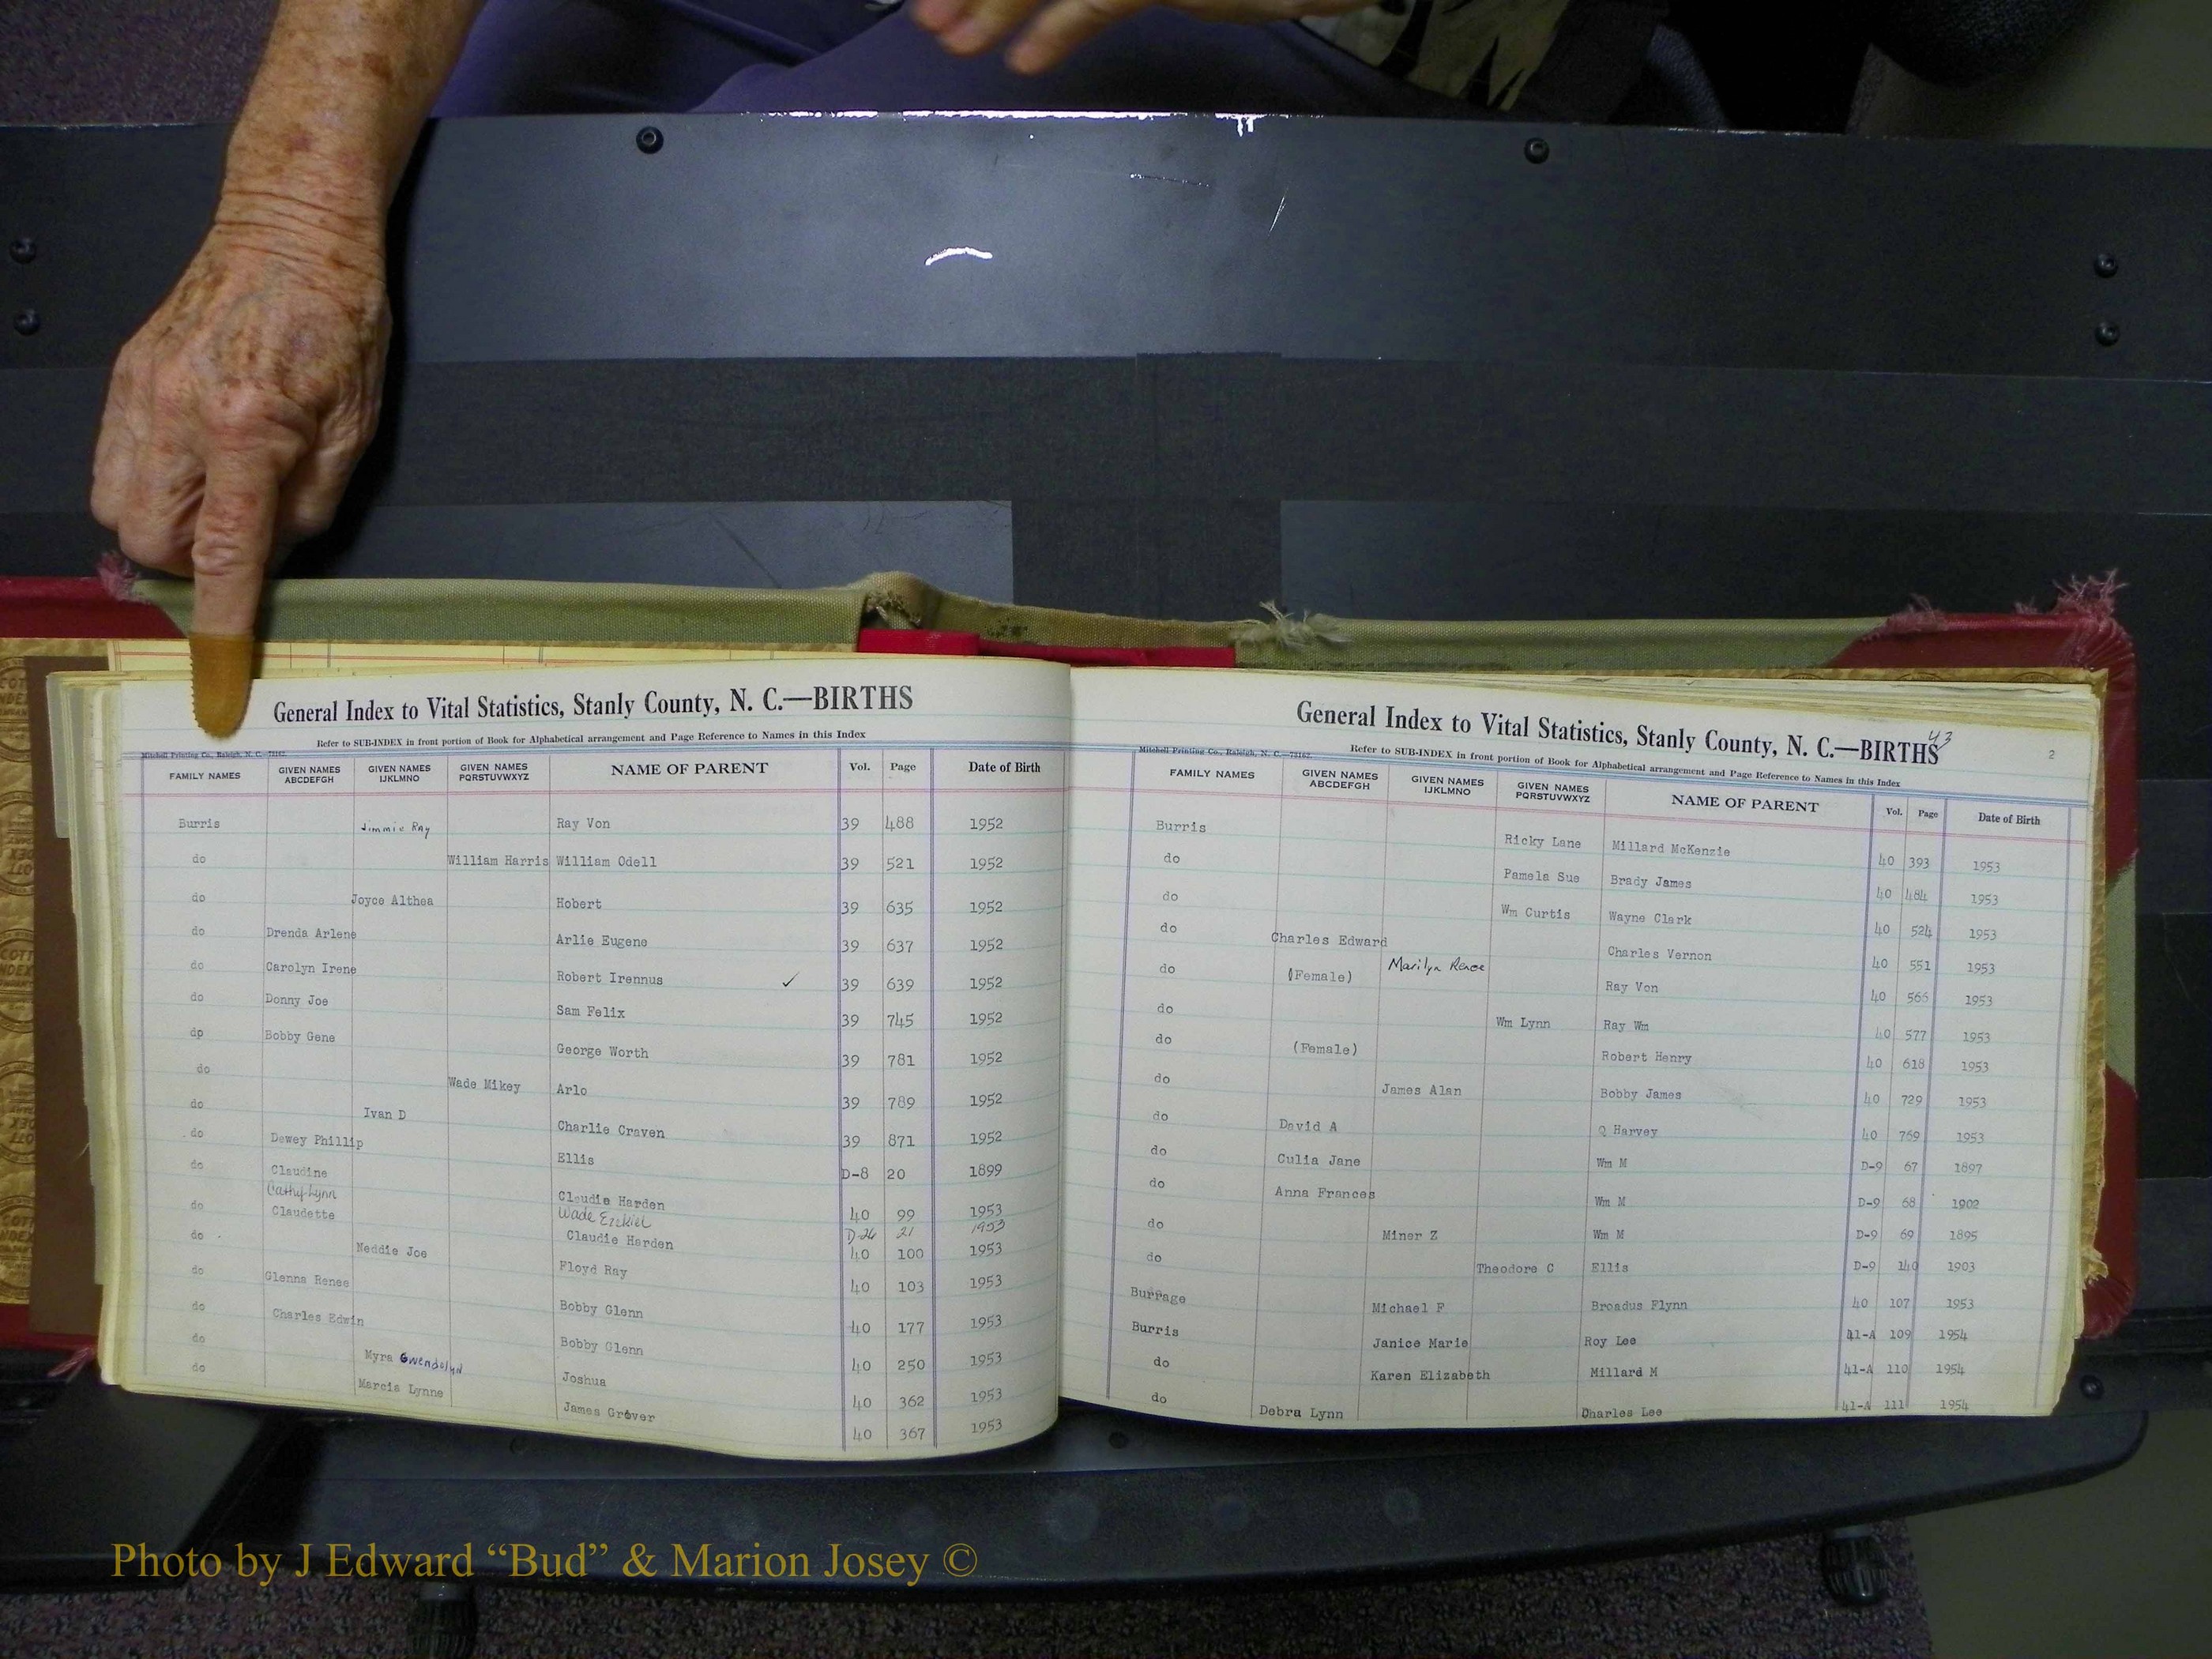 General Index to Vital Statistics, Stanly County, N. C.—BIRTHS
Refer to SUB-INDEX in front portion of Book for Alphabetical arrangement and Page Reference to Names in this Index
Mitchell Printing Co., Raleigh, N. C.—73162.
FAMILY NAMES GIVEN NAMES ABCDEFGH GIVEN NAMES IJKLMNO GIVEN NAMES PQRSTUVWXYZ NAME OF PARENT Vol. Page Date of Birth
Burris Jimmie Ray Ray Von 39 488 1952
do William Harris William Odell 39 521 1952
do Joyce Althea Hobert 39 635 1952
do Drenda Arlene Arlie Eugene 39 637 1952
do Carolyn Irene Robert Irennus ✓ 39 639 1952
do Donny Joe Sam Felix 39 745 1952
dp Bobby Gene George Worth 39 781 1952
do Wade Mikey Arlo 39 789 1952
do Ivan D Charlie Craven 39 871 1952
do Dewey Phillip Ellis D-8 20 1899
do Claudine Claudie Harden 40 99 1953
Cathy Lynn Wade Ezekiel D-26 21 1953
do Claudette Claudie Harden 40 100 1953
do Neddie Joe Floyd Ray 40 103 1953
do Glenna Renee Bobby Glenn 40 177 1953
do Charles Edwin Bobby Glenn 40 250 1953
do Myra Gwendolyn Joshua 40 362 1953
do Marcia Lynne James Grover 40 367 1953
General Index to Vital Statistics, Stanly County, N. C.—BIRTHS
43
2
Refer to SUB-INDEX in front portion of Book for Alphabetical arrangement and Page Reference to Names in this Index
Mitchell Printing Co., Raleigh, N. C.—73162.
FAMILY NAMES GIVEN NAMES ABCDEFGH GIVEN NAMES IJKLMNO GIVEN NAMES PQRSTUVWXYZ NAME OF PARENT Vol. Page Date of Birth
Burris Ricky Lane Millard McKenzie 40 393 1953
do Pamela Sue Brady James 40 484 1953
do Wm Curtis Wayne Clark 40 524 1953
do Charles Edward Charles Vernon 40 551 1953
do (Female) Marilyn Renee Ray Von 40 566 1953
do Wm Lynn Ray Wm 40 577 1953
do (Female) Robert Henry 40 618 1953
do James Alan Bobby James 40 729 1953
do David A Q Harvey 40 769 1953
do Culia Jane Wm M D-9 67 1897
do Anna Frances Wm M D-9 68 1902
do Miner Z Wm M D-9 69 1895
do Theodore C Ellis D-9 140 1903
Burrage Michael F Broadus Flynn 40 107 1953
Burris Janice Marie Roy Lee 41-A 109 1954
do Karen Elizabeth Millard M 41-A 110 1954
do Debra Lynn Charles Lee 41-A 111 1954
Photo by J Edward “Bud” & Marion Josey ©